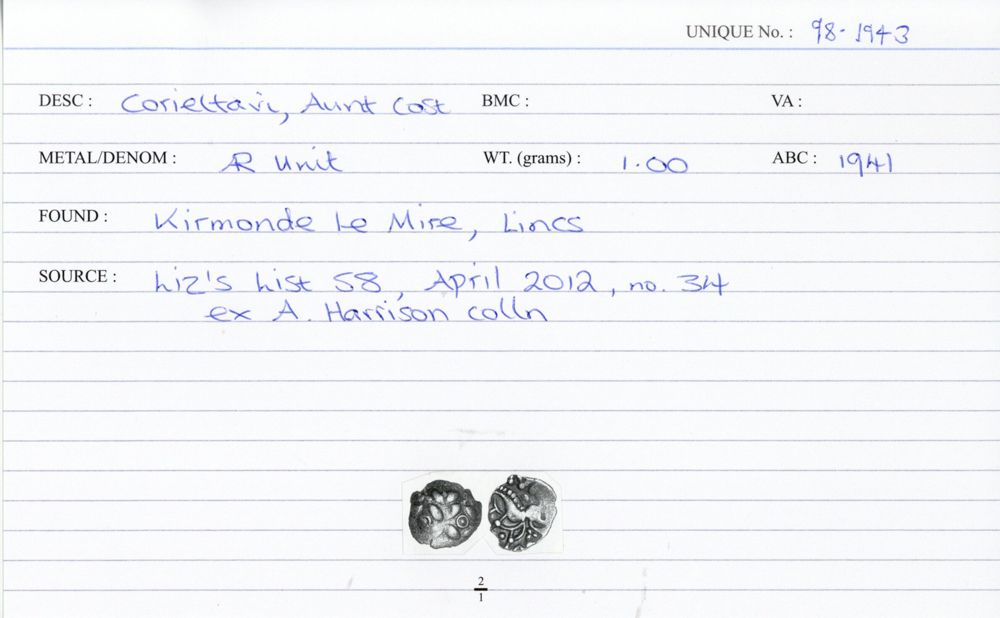 UNIQUE No. : 98-1943
DESC : Corieltavi, Aunt Cost BMC : VA :
METAL/DENOM : AR Unit WT. (grams) : 1.00 ABC : 1941
FOUND : Kirmonde Le Mire, Lincs
SOURCE : Liz's List 58, April 2012, no. 34
ex A. Harrison colln
2
1